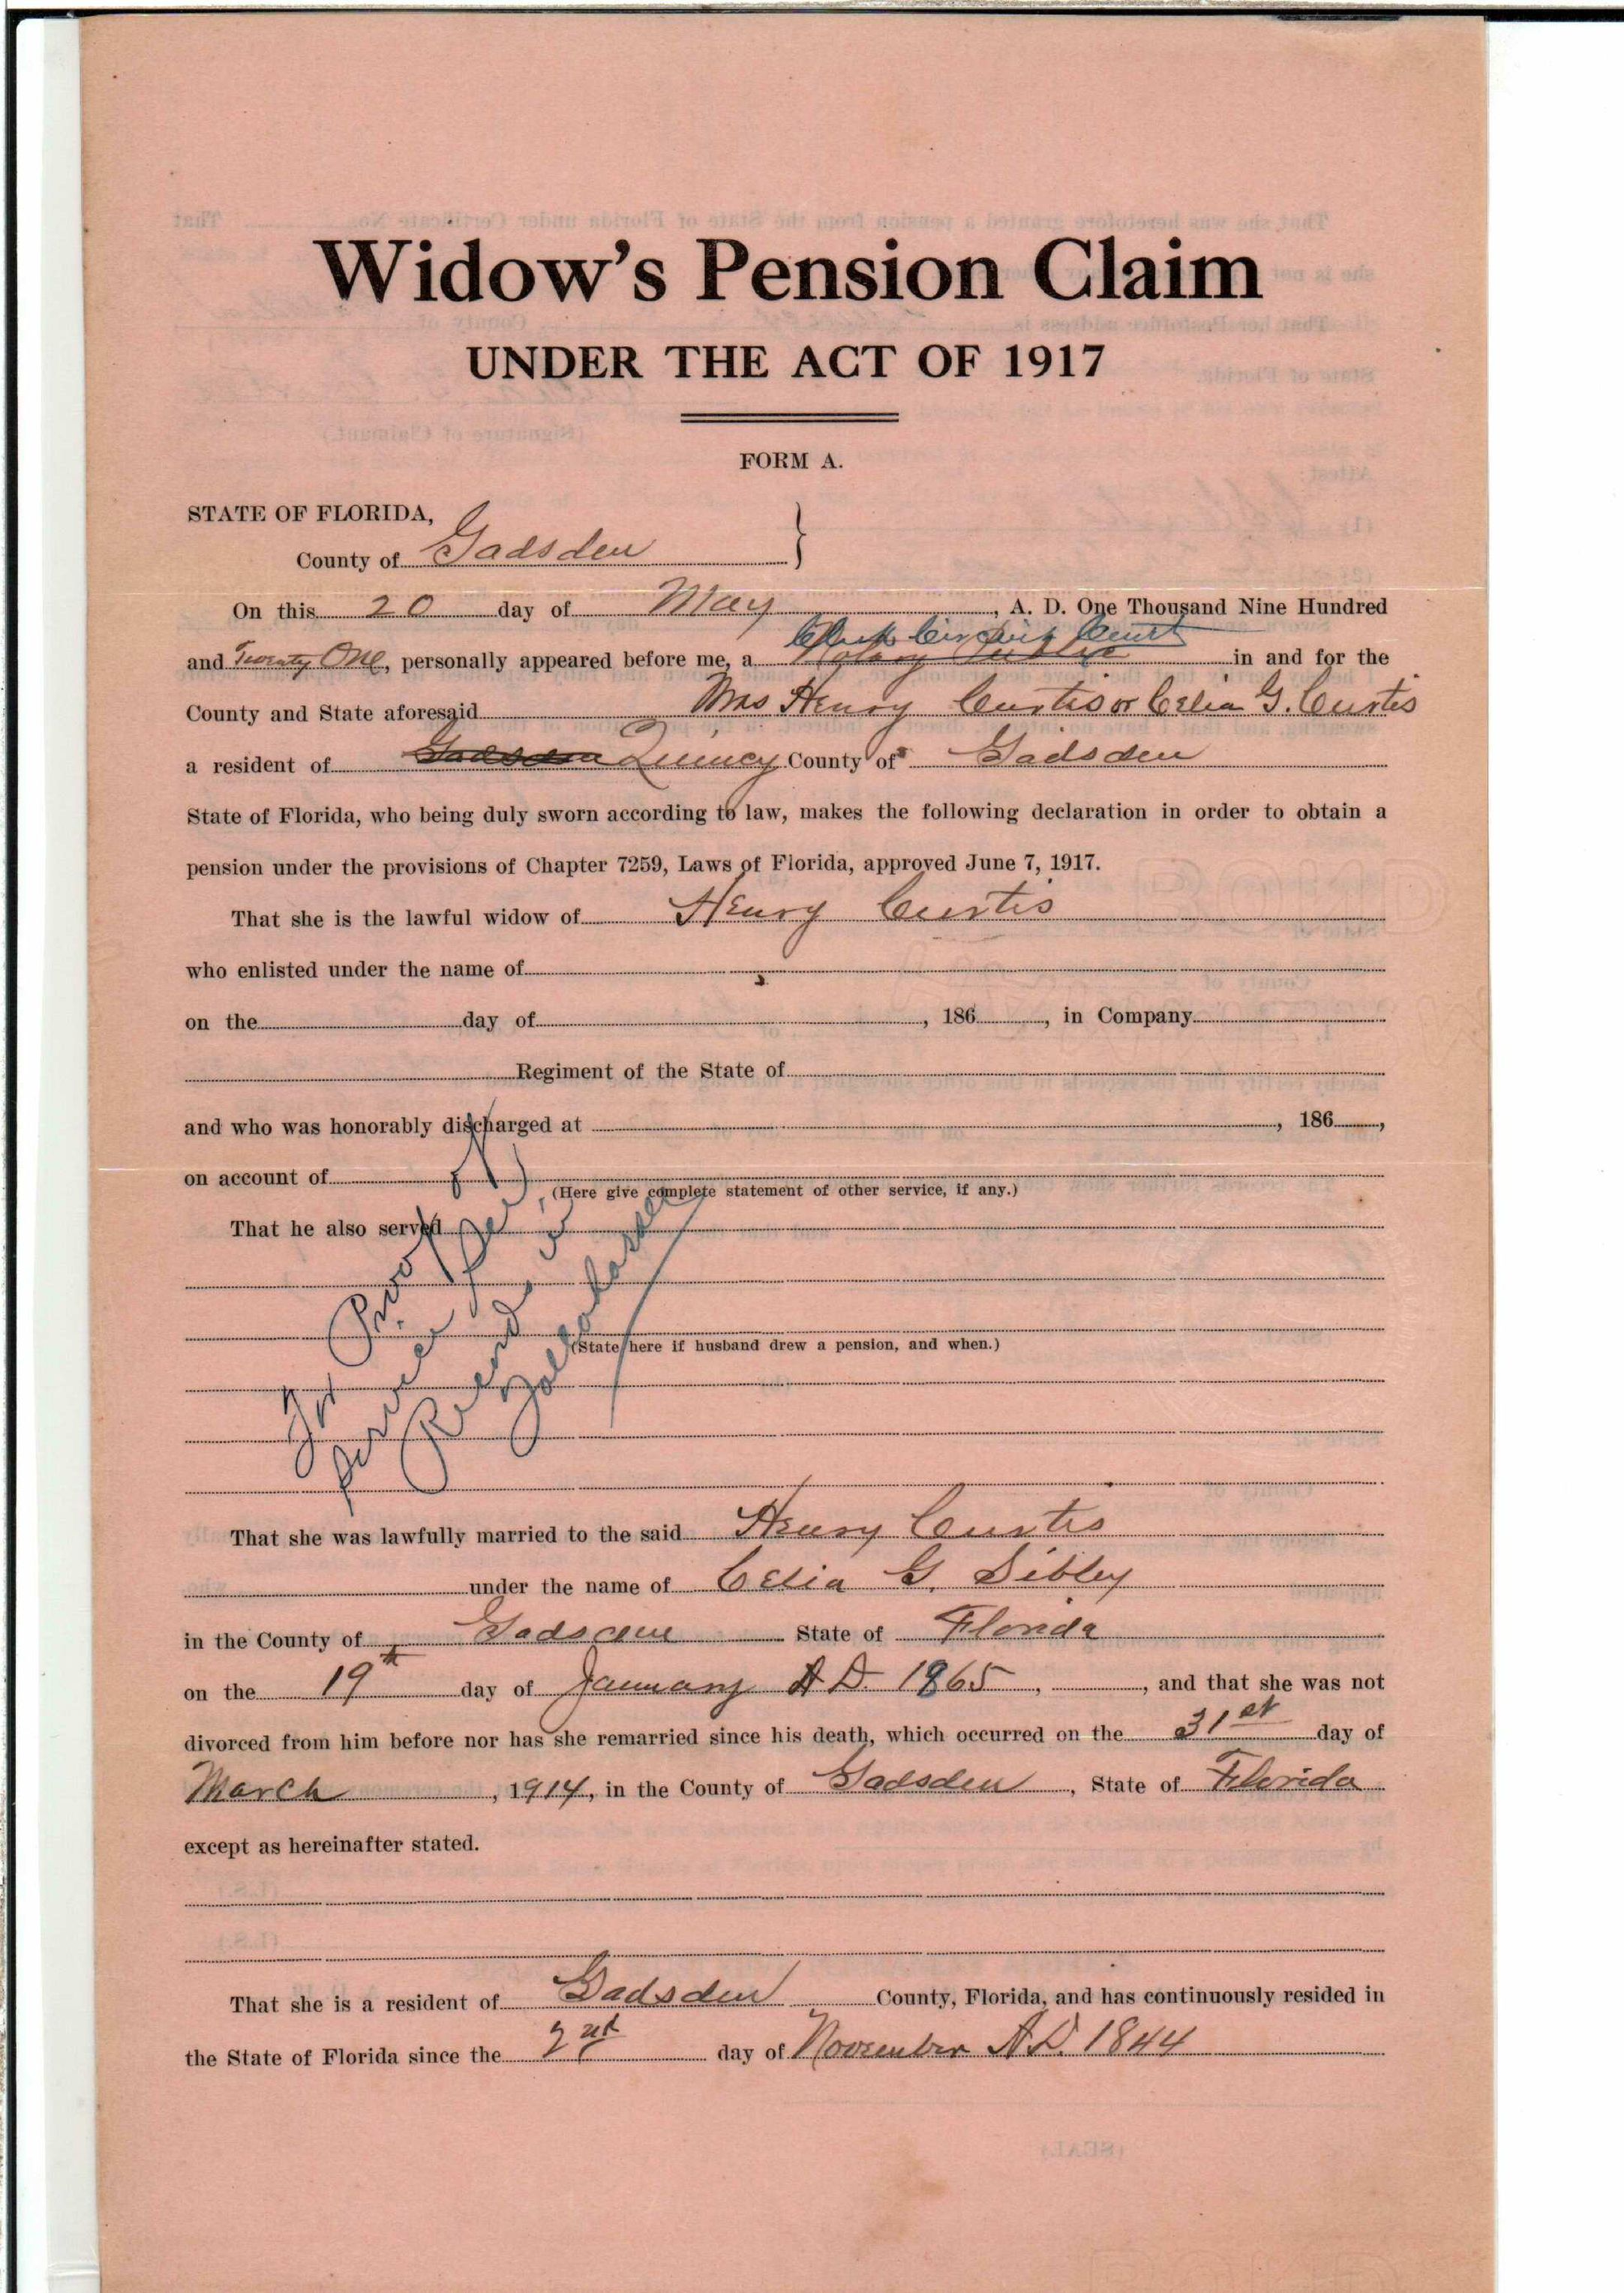 Widow's Pension Claim
UNDER THE ACT OF 1917
FORM A.
STATE OF FLORIDA,
County of Gadsden
On this 20 day of May, A. D. One Thousand Nine Hundred
Clerk Circuit Court
and Twenty One, personally appeared before me, a Notary Public in and for the
County and State aforesaid Mrs Henry Curtis or Celia G. Curtis
a resident of Gadsden Quincy County of Gadsden
State of Florida, who being duly sworn according to law, makes the following declaration in order to obtain a
pension under the provisions of Chapter 7259, Laws of Florida, approved June 7, 1917.
That she is the lawful widow of Henry Curtis
who enlisted under the name of
on the day of , 186 , in Company
Regiment of the State of
and who was honorably discharged at , 186 ,
on account of
(Here give complete statement of other service, if any.)
That he also served
(State here if husband drew a pension, and when.)
That she was lawfully married to the said Henry Curtis
under the name of Celia G. Sibley
in the County of Gadsden State of Florida
on the 19th day of January A.D. 1865, , and that she was not
divorced from him before nor has she remarried since his death, which occurred on the 31st day of
March, 1914, in the County of Gadsden, State of Florida
except as hereinafter stated.
That she is a resident of Gadsden County, Florida, and has continuously resided in
the State of Florida since the 2nd day of November A.D. 1844